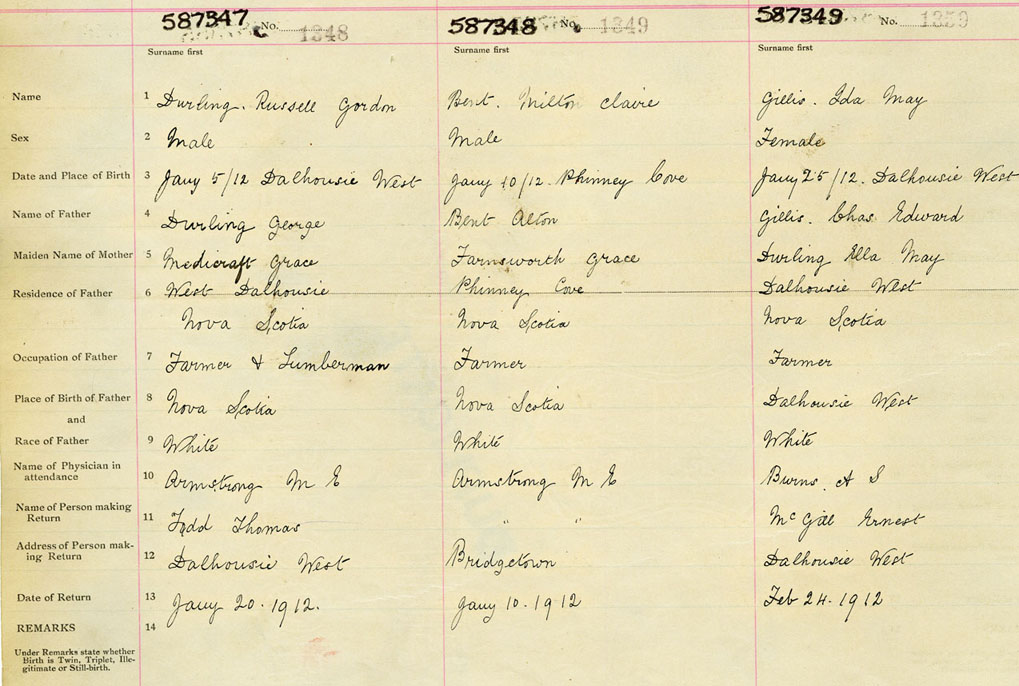 587347 No. 1348 587348 No. 1349 587349 No. 1350
Surname first Surname first Surname first
Name 1 Durling. Russell Gordon Bent. Milton Claire Gillis. Ida May
Sex 2 Male Male Female
Date and Place of Birth 3 Jany 5/12 Dalhousie West Jany 10/12. Phinney Cove Jany 25/12. Dalhousie West
Name of Father 4 Durling George Bent Alton Gillis. Chas Edward
Maiden Name of Mother 5 Medicraft Grace Farnsworth Grace Durling Ella May
Residence of Father 6 West Dalhousie Phinney Cove Dalhousie West
Nova Scotia Nova Scotia Nova Scotia
Occupation of Father 7 Farmer & Lumberman Farmer Farmer
Place of Birth of Father 8 Nova Scotia Nova Scotia Dalhousie West
and
Race of Father 9 White White White
Name of Physician in
attendance 10 Armstrong M E Armstrong M E Burns. A S
Name of Person making
Return 11 Todd Thomas " " McGill Ernest
Address of Person mak-
ing Return 12 Dalhousie West Bridgetown Dalhousie West
Date of Return 13 Jany 20. 1912. Jany 10. 1912 Feb 24. 1912
REMARKS 14
Under Remarks state whether
Birth is Twin, Triplet, Ille-
gitimate or Still-birth.